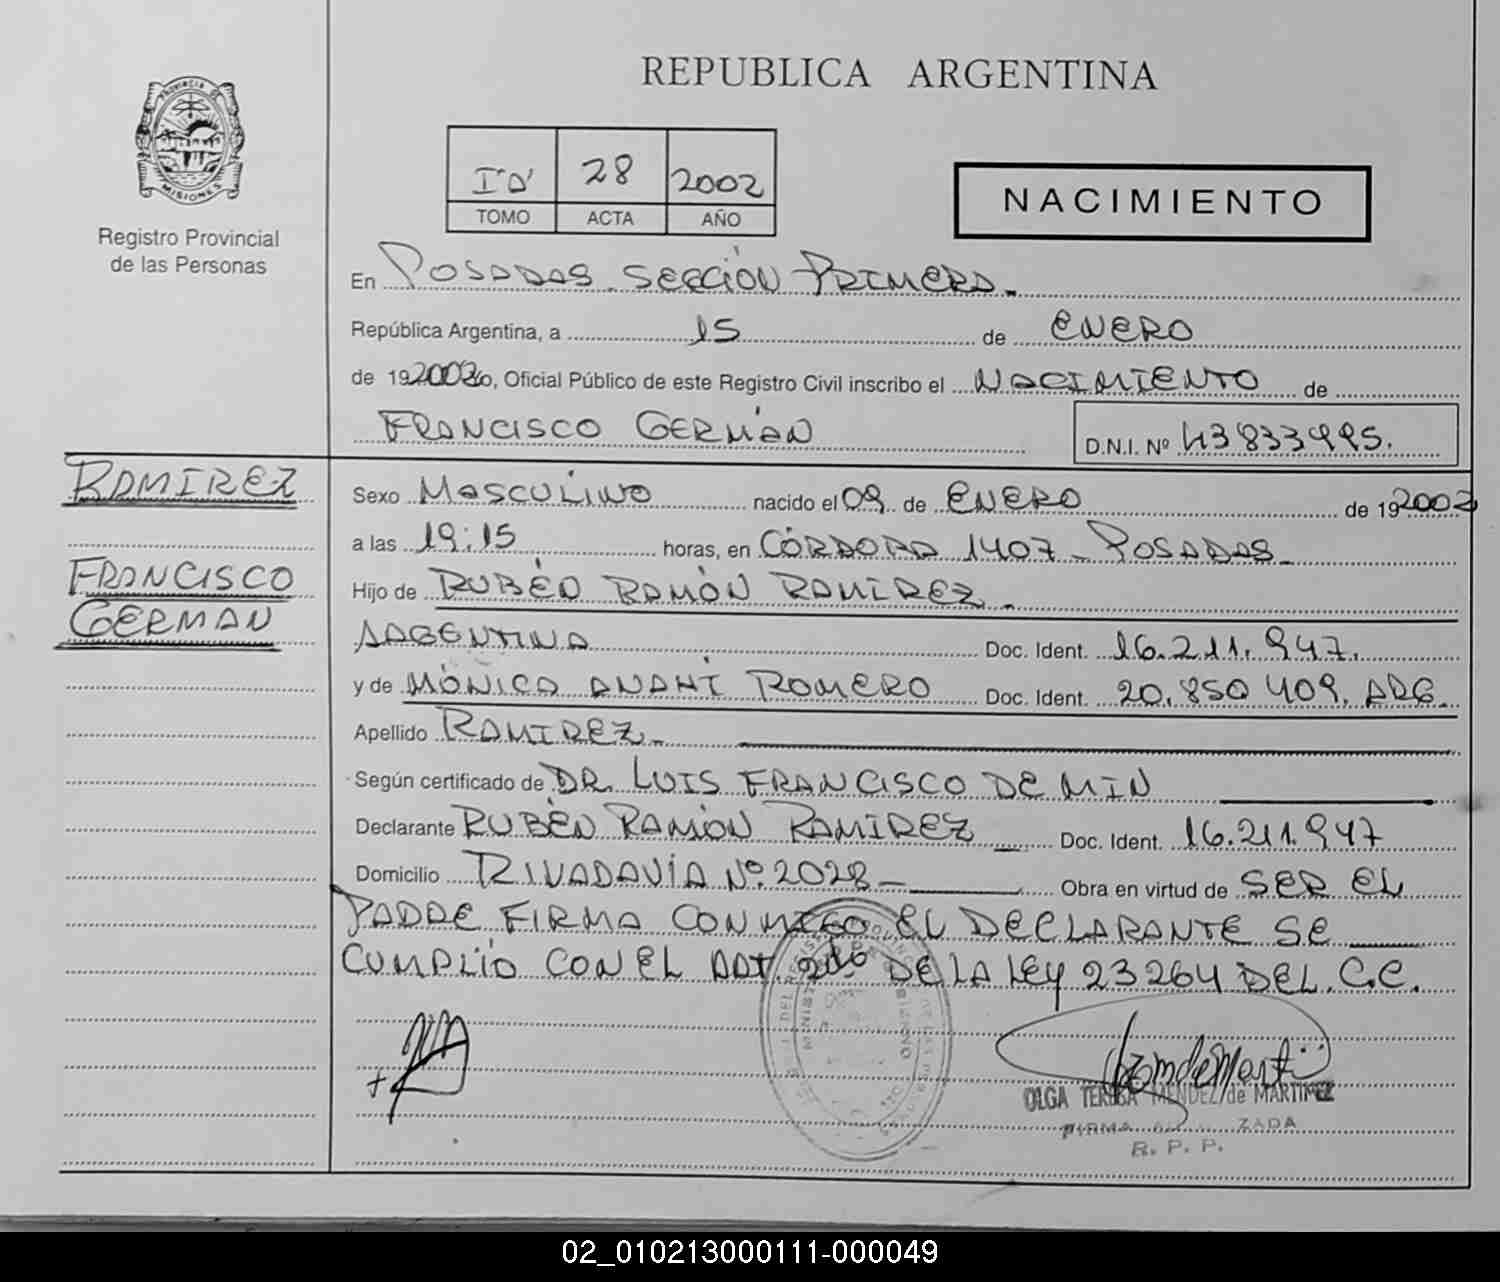 REPUBLICA ARGENTINA
PROVINCIA DE
MISIONES
Registro Provincial
de las Personas
I"D" 28 2002
TOMO ACTA AÑO
NACIMIENTO
En POSADAS SECCIÓN PRIMERA.
República Argentina, a 15 de ENERO
de 19 2002 yo, Oficial Público de este Registro Civil inscribo el NACIMIENTO de
FRANCISCO GERMÁN
D.N.I. Nº 43833995.
RAMIREZ
FRANCISCO
GERMAN
Sexo MASCULINO nacido el 09 de ENERO de 19 2002
a las 19:15 horas, en CÓRDOBA 1407 - POSADAS
Hijo de RUBÉN RAMÓN RAMIREZ.
ARGENTINA Doc. Ident. 16.211.947.
y de MÓNICA ANAHÍ ROMERO Doc. Ident. 20.850 409. ARG.
Apellido RAMIREZ
Según certificado de DR. LUIS FRANCISCO DE MIN
Declarante RUBÉN RAMÓN RAMIREZ Doc. Ident. 16.211.947
Domicilio RIVADAVIA Nº. 2028 Obra en virtud de SER EL
PADRE FIRMA CONMIGO EL DECLARANTE SE
CUMPLIÓ CON EL ART. DE LA LEY 23264 DEL C.C.
OLGA TERESA MENDEZ de MARTINEZ
FIRMA
R. P. P.
02_010213000111-000049